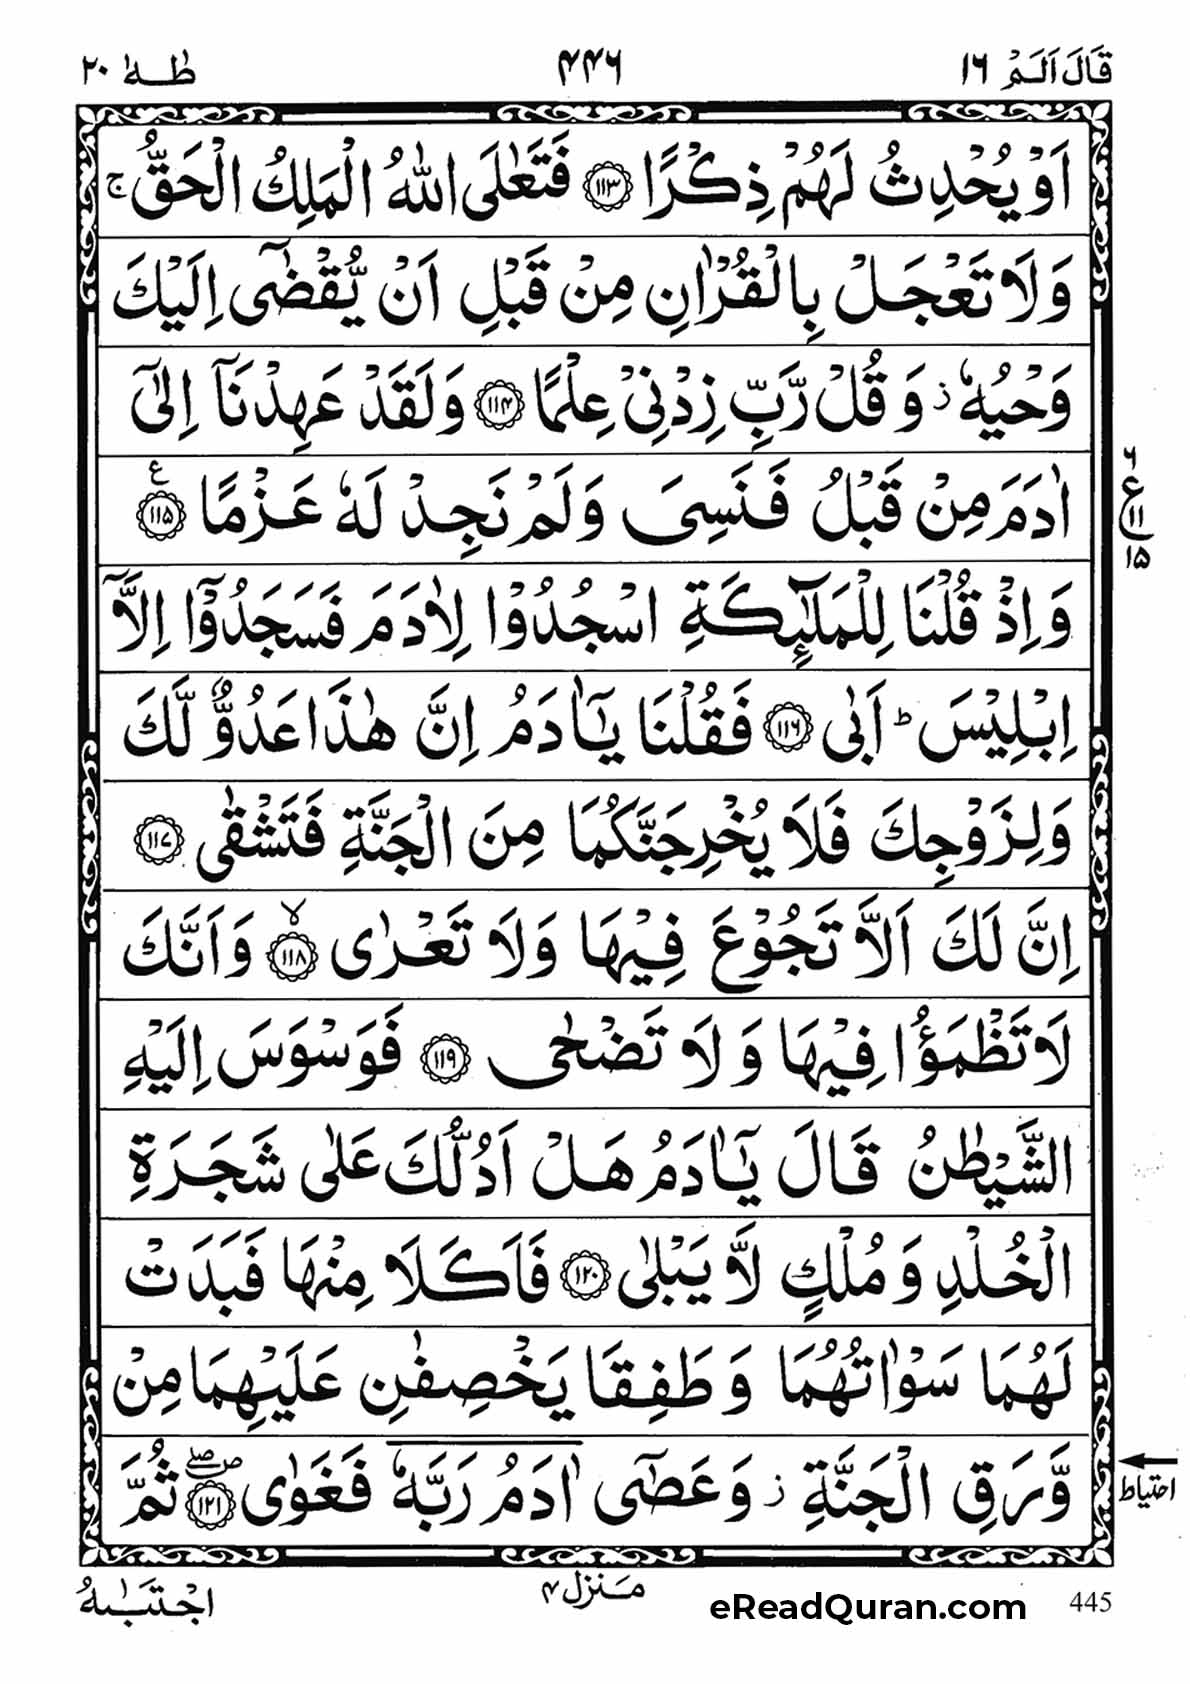 قَالَ اَلَمْ ١٦
٤٤٦
طٰهٰ ٢٠
اَوْ يُحْدِثُ لَهُمْ ذِكْرًا ﴿١١٣﴾ فَتَعٰلَى اللّٰهُ الْمَلِكُ الْحَقُّ ۚ
وَلَا تَعْجَلْ بِالْقُرْاٰنِ مِنْ قَبْلِ اَنْ يُّقْضٰٓى اِلَيْكَ
وَحْيُهٗ ز وَقُلْ رَّبِّ زِدْنِيْ عِلْمًا ﴿١١٤﴾ وَلَقَدْ عَهِدْنَآ اِلٰٓى
اٰدَمَ مِنْ قَبْلُ فَنَسِىَ وَلَمْ نَجِدْ لَهٗ عَزْمًا ﴿١١٥﴾ ع
٦
ع ١١
١٥
وَاِذْ قُلْنَا لِلْمَلٰٓئِكَةِ اسْجُدُوْا لِاٰدَمَ فَسَجَدُوْٓا اِلَّآ
اِبْلِيْسَ ؕ اَبٰى ﴿١١٦﴾ فَقُلْنَا يٰٓاٰدَمُ اِنَّ هٰذَا عَدُوٌّ لَّكَ
وَلِزَوْجِكَ فَلَا يُخْرِجَنَّكُمَا مِنَ الْجَنَّةِ فَتَشْقٰى ﴿١١٧﴾
اِنَّ لَكَ اَلَّا تَجُوْعَ فِيْهَا وَلَا تَعْرٰى ﴿١١٨﴾ ۙ وَاَنَّكَ
لَا تَظْمَؤُا فِيْهَا وَلَا تَضْحٰى ﴿١١٩﴾ فَوَسْوَسَ اِلَيْهِ
الشَّيْطٰنُ قَالَ يٰٓاٰدَمُ هَلْ اَدُلُّكَ عَلٰى شَجَرَةِ
الْخُلْدِ وَمُلْكٍ لَّا يَبْلٰى ﴿١٢٠﴾ فَاَكَلَا مِنْهَا فَبَدَتْ
لَهُمَا سَوْاٰتُهُمَا وَطَفِقَا يَخْصِفٰنِ عَلَيْهِمَا مِنْ
وَّرَقِ الْجَنَّةِ ز وَعَصٰٓى اٰدَمُ رَبَّهٗ فَغَوٰى ﴿١٢١﴾ ص صلے ثُمَّ
احتیاط
اجْتَبٰىهُ
مَنْزِل ٤
eReadQuran.com
445